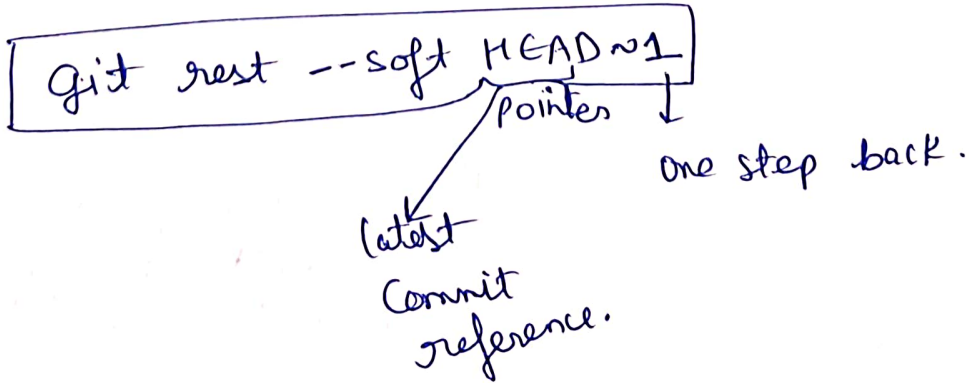 git rest --soft HEAD~1
pointer
one step back.
latest
Commit
reference.